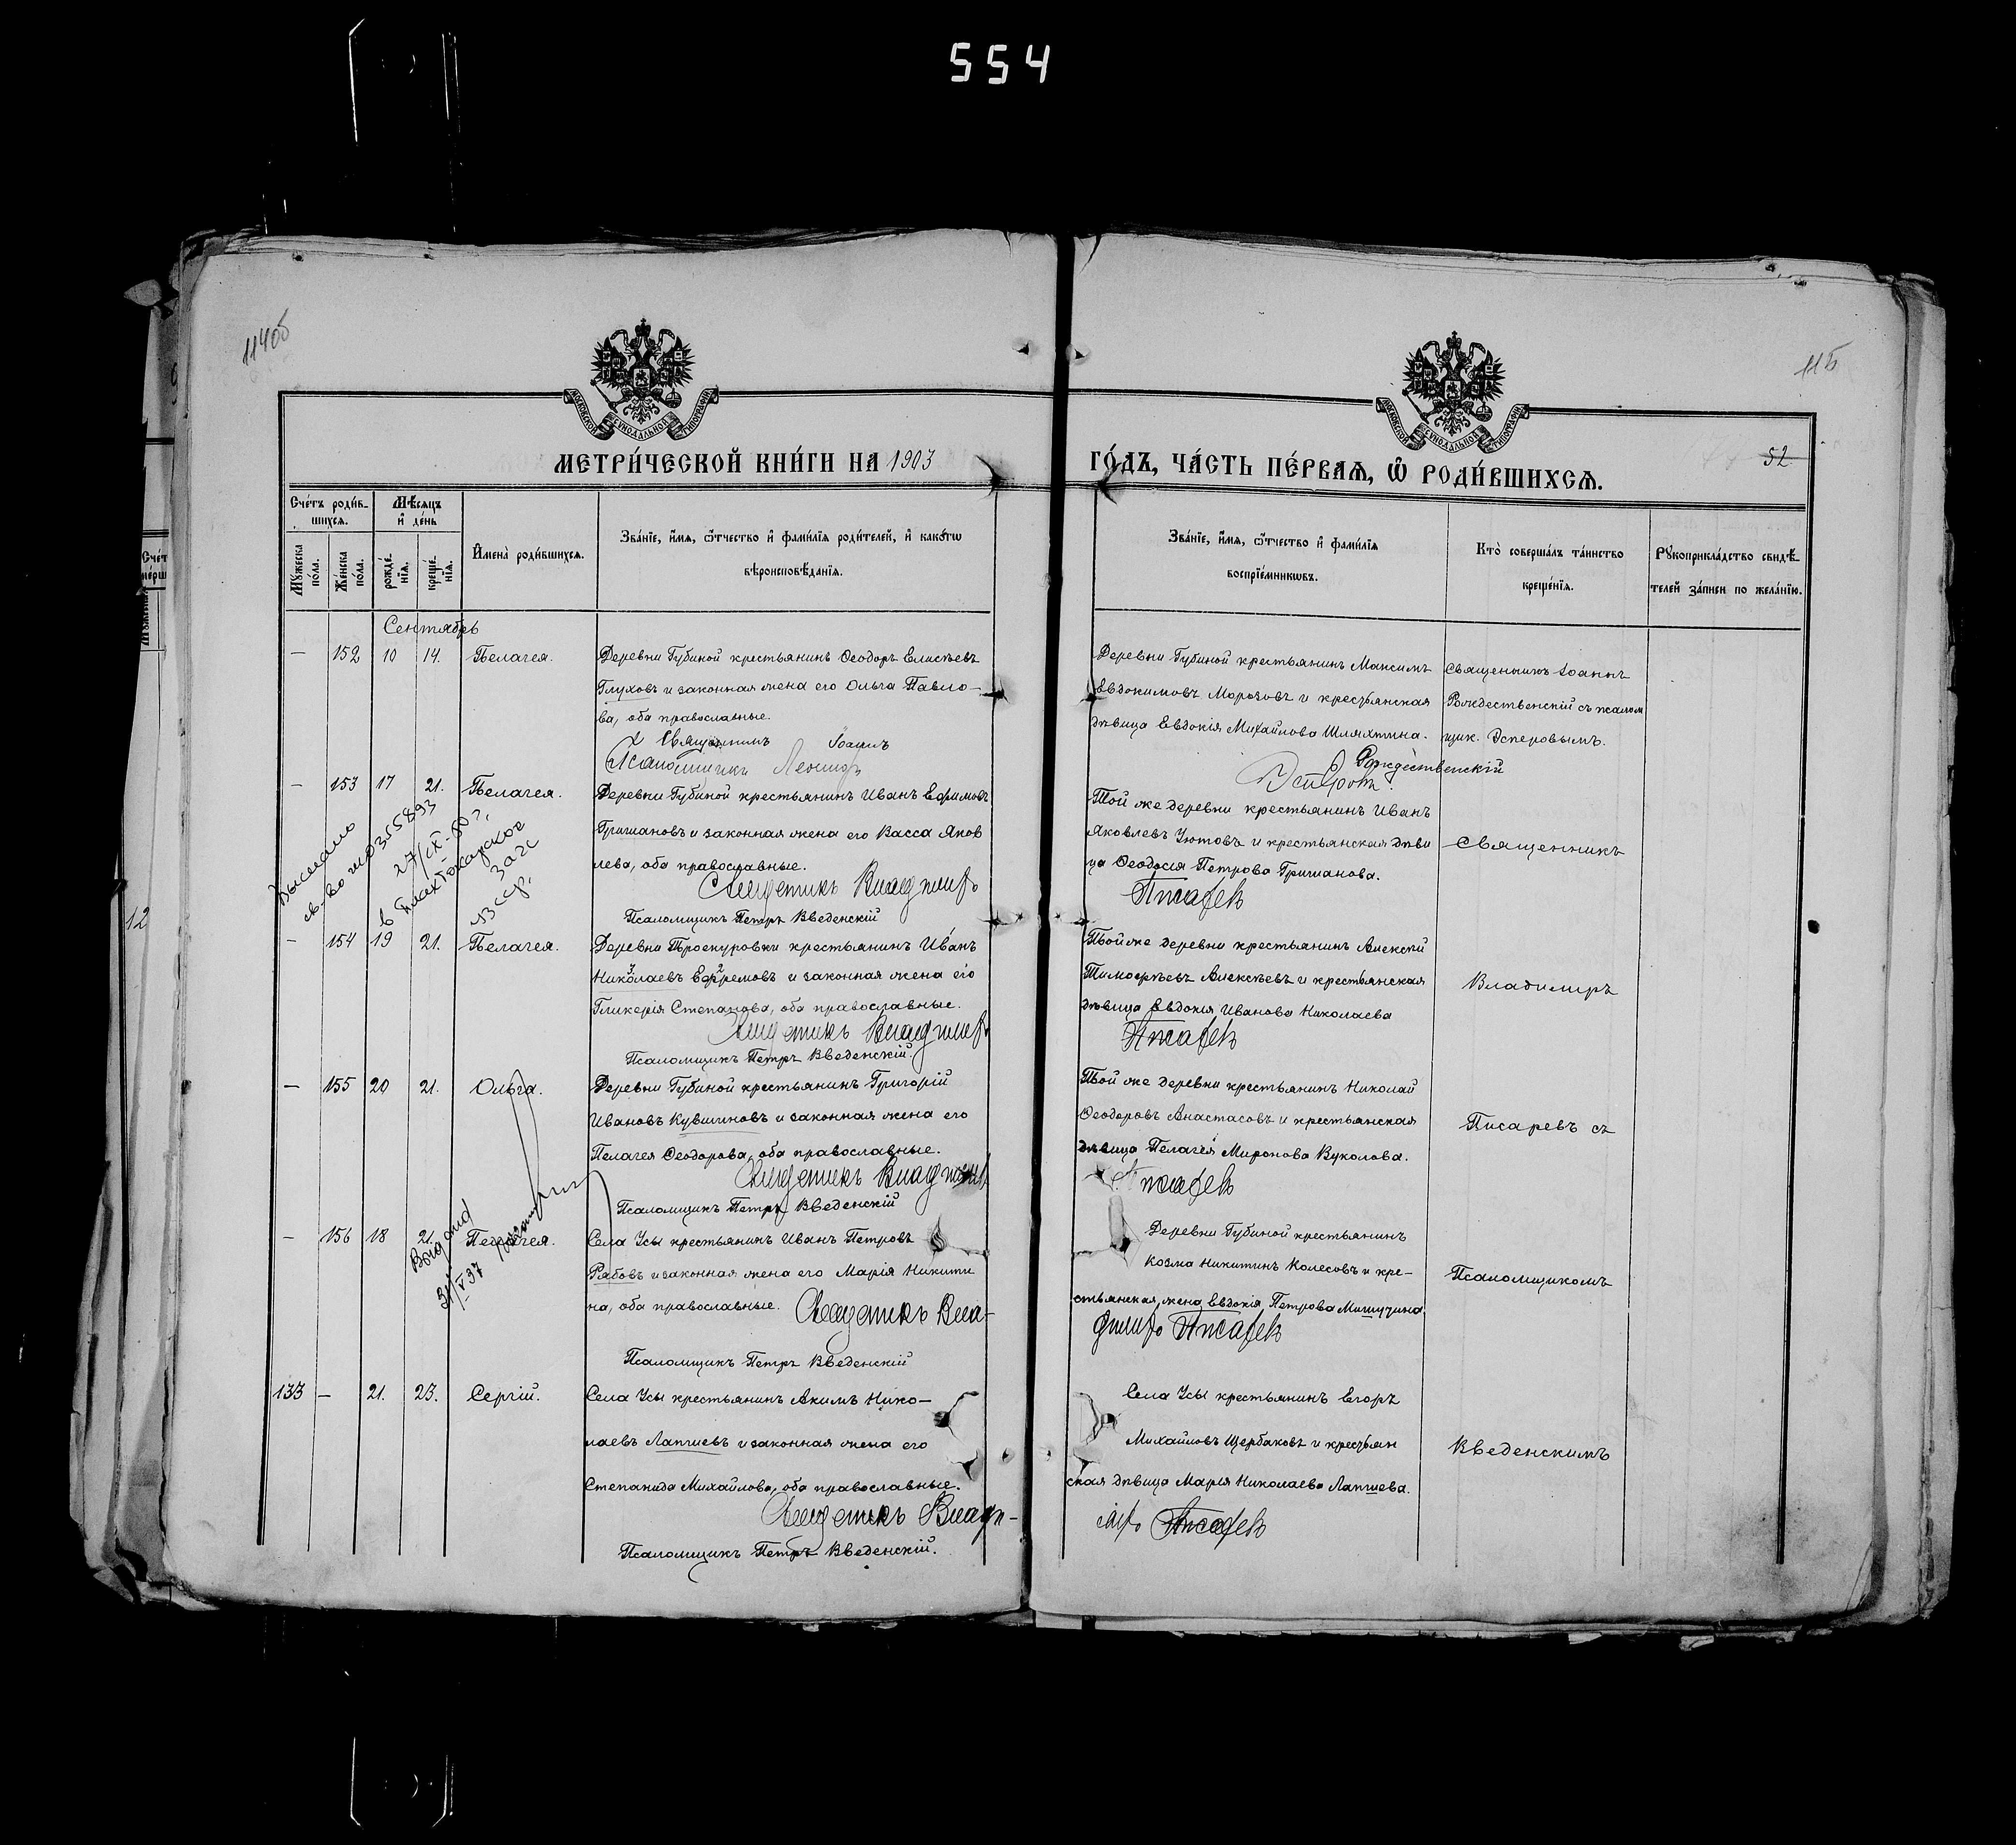 554
114об
115
МОСКОВСКОЙ СУНОДАЛЬНОЙ ТИПОГРАФІИ
МОСКОВСКОЙ СУНОДАЛЬНОЙ ТИПОГРАФІИ
МЕТРИ́ЧЕСКОЙ КНИ́ГИ НА 1903
ГО́ДЪ, ЧА́СТЬ ПЕ́РВАѦ, Ѡ҆ РОДИ́ВШИХСѦ.
52.
Сче́тъ роди́в-
шихсѧ.
Мѣ́сѧцъ
и҆ де́нь
Му́жеска
по́ла.
Же́нска
по́ла.
рожде́-
нїѧ.
креще́-
нїѧ.
И҆мена̀ роди́вшихсѧ.
Зва́нїе, и҆́мѧ, ѻ҆́тчество и҆ фами́лїѧ роди́телей, и҆ како́гѡ
вѣроисповѣ́данїѧ.
Зва́нїе, и҆́мѧ, ѻ҆́тчество и҆ фами́лїѧ
воспрїе́мникѡвъ.
Кто̀ соверша́лъ та́инство
креще́нїѧ.
Рꙋкоприкла́дство свидѣ́-
телей за́писи по жела́нїю.
Сентябрь
— 152 10 14. Пелагея.
Деревни Губиной крестьянинъ Ѳеодоръ Елисѣевъ
Глуховъ и законная жена его Ольга Павло-
ва, оба православные.
Священникъ Іоаннъ
Псаломщикъ Леонидъ
Деревни Губиной крестьянинъ Максимъ
Евдокимовъ Морозовъ и крестьянская
дѣвица Евдокія Михайлова Шляхтина.
Рождественскій
Эсперовъ.
Священникъ Іоаннъ
Рождественскій съ псалом
щик. Эсперовымъ.
— 153 17 21. Пелагея.
Деревни Губиной крестьянинъ Иванъ Ефимовъ
Гришановъ и законная жена его Васса Яков
лева, оба православные.
Священникъ Владимиръ
Псаломщикъ Петръ Введенскій
Той же деревни крестьянинъ Иванъ
Яковлевъ Утовъ и крестьянская дѣви
ца Ѳеодосія Петрова Гришанова.
Писаревъ
Священникъ
Выслано
св-во
27/IX-50 г.
загс
— 154 19 21. Пелагея.
Деревни Проскуровки крестьянинъ Иванъ
Николаевъ Ефремовъ и законная жена его
Гликерія Степанова, оба православные.
Священникъ Владимиръ
Псаломщикъ Петръ Введенскій.
Той же деревни крестьянинъ Алексѣй
Тимоѳеевъ Алексѣевъ и крестьянская
дѣвица Евдокія Иванова Николаева
Писаревъ
Владимиръ
— 155 20 21. Ольга.
Деревни Губиной крестьянинъ Григорій
Ивановъ Кувшиновъ и законная жена его
Пелагея Ѳеодорова, оба православные.
Священникъ Владимиръ
Псаломщикъ Петръ Введенскій
Той же деревни крестьянинъ Николай
Ѳеодоровъ Анастасовъ и крестьянская
дѣвица Пелагея Миронова Вуколова.
Писаревъ
Писаревъ съ
Выдано
31/V 37
— 156 18 21. Пелагея.
Села Усы крестьянинъ Иванъ Петровъ
Рябовъ и законная жена его Марія Никити
на, оба православные. Священникъ Вла-
Псаломщикъ Петръ Введенскій
Деревни Губиной крестьянинъ
Козма Никитинъ Колесовъ и кре-
стьянская жена Евдокія Петрова Мишучина
димиръ Писаревъ
Псаломщикомъ
133 — 21. 23. Сергій.
Села Усы крестьянинъ Акимъ Нико-
лаевъ Лапшевъ и законная жена его
Степанида Михайлова, оба православные.
Священникъ Влади-
Псаломщикъ Петръ Введенскій.
Села Усы крестьянинъ Егоръ
Михайловъ Щербаковъ и крестьян
ская дѣвица Марія Николаева Лапшева.
миръ Писаревъ
Введенскимъ
12